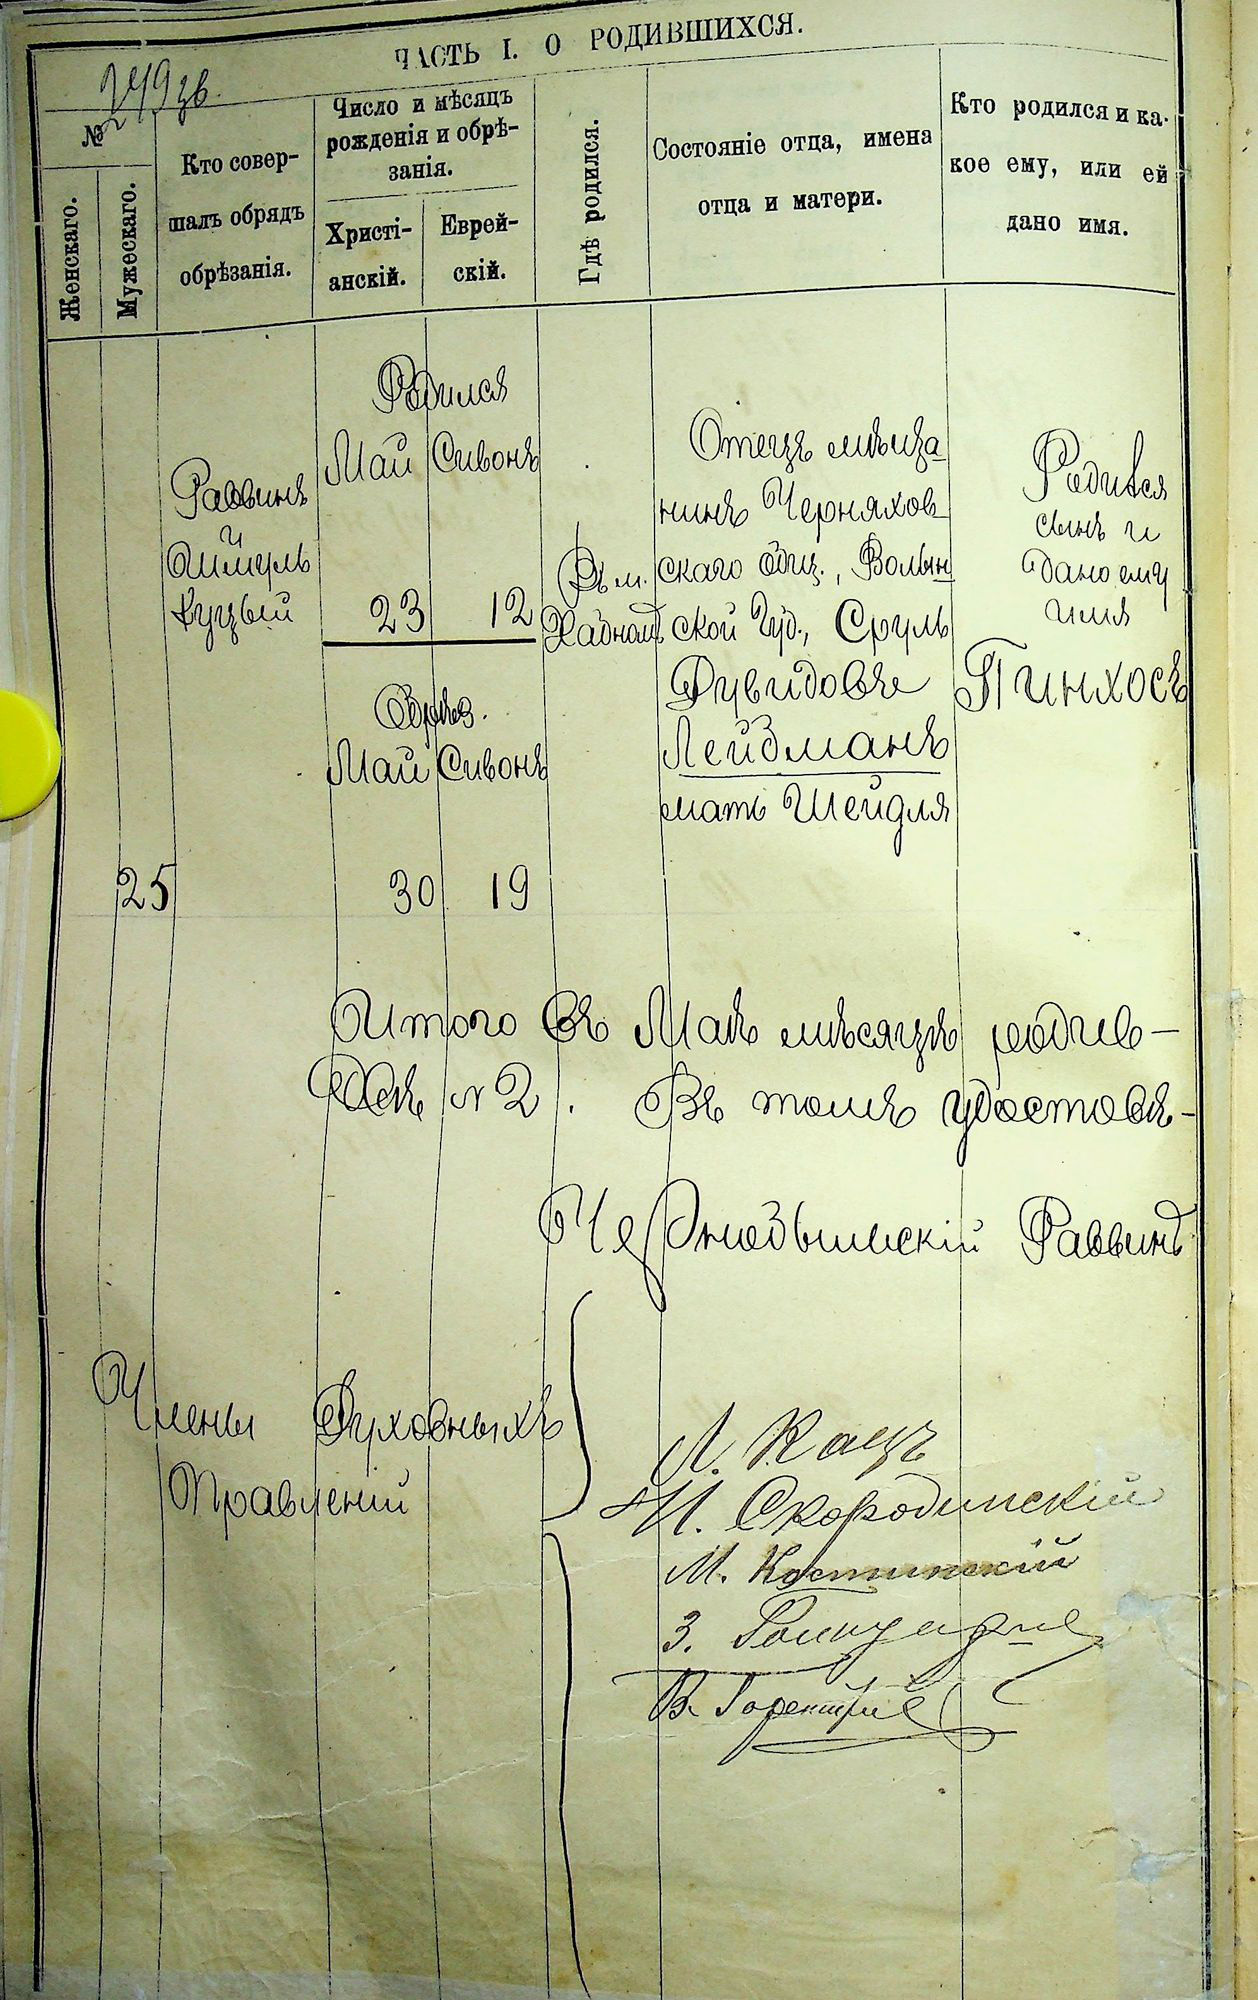 ЧАСТЬ I. О РОДИВШИХСЯ.
249 зв.
№
Женскаго.
Мужескаго.
Кто совер-
шалъ обрядъ
обрѣзанія.
Число и мѣсяцъ
рожденія и обрѣ-
занія.
Христі-
анскій.
Еврей-
скій.
Гдѣ родился.
Состояніе отца, имена
отца и матери.
Кто родился и ка-
кое ему, или ей
дано имя.
25
Раввинъ
и
Шмуль
Куцый
Родился
Май Сивонъ
23 12
Обрѣз.
Май Сивонъ
30 19
Въ м.
Хабномъ
Отецъ мѣща
нинъ Черняхов
скаго общ., Волын
ской Губ., Сруль
Дувидовъ
Лейдманъ
мать Шейдля
Родился
сынъ и
дано ему
имя
Пинхосъ
Итого въ Маѣ мѣсяцѣ родив-
2. Въ томъ удостовѣ-
Раввинъ
Члены Духовныхъ
Правленій
Л. Кацъ
И. Скородинскій
М.
З.
В.